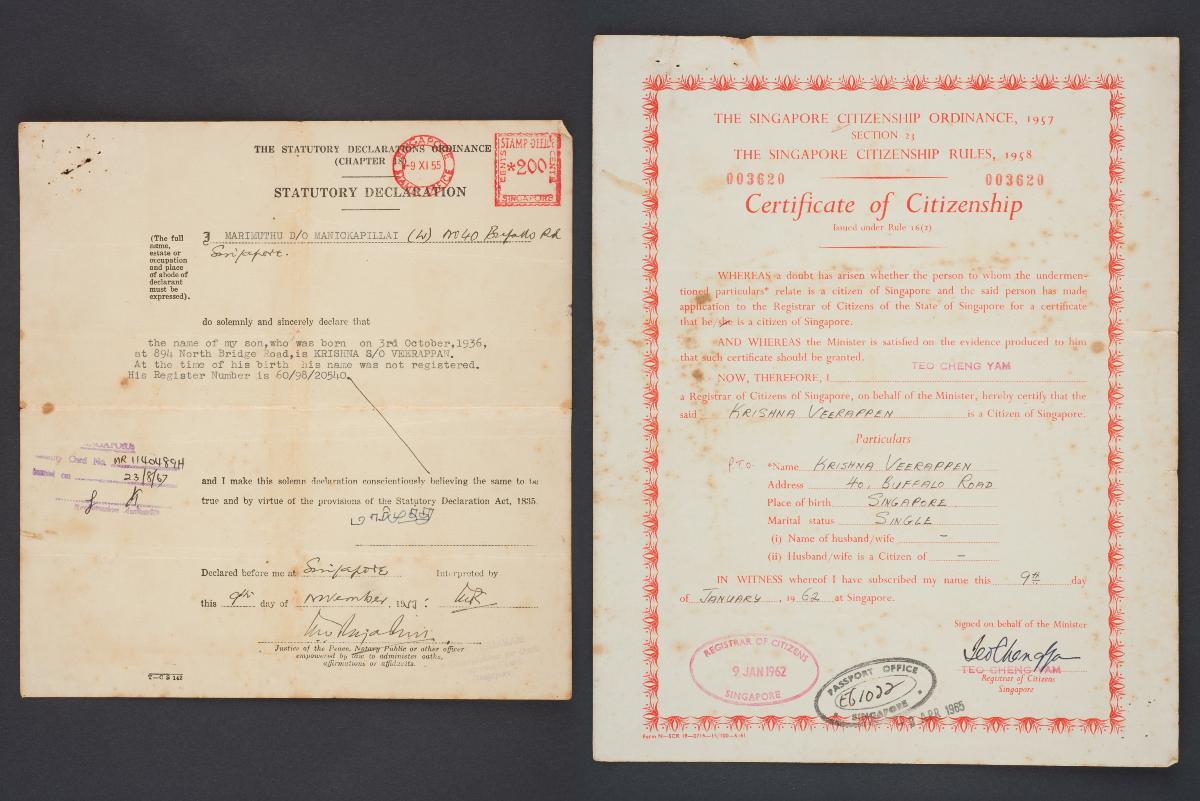 THE STATUTORY DECLARATIONS ORDINANCE
(CHAPTER 18)
SINGAPORE
-9 XI 55
STAMP OFFICE
STAMP OFFICE
CENTS *200 CENTS
SINGAPORE
STATUTORY DECLARATION
(The full
name,
estate or
occupation
and place
of abode of
declarant
must be
expressed).
I MARIMUTHU D/O MANICKAPILLAI (W) No 40 Buffalo Rd
Singapore.
do solemnly and sincerely declare that
the name of my son,who was born on 3rd October,1936,
at 894 North Bridge Road,is KRISHNA S/O VEERAPPAN.
At the time of his birth his name was not registered.
His Register Number is 60/98/20540.
SINGAPORE
Card No. MR 1140489H
Issued on 23/8/67
and I make this solemn declaration conscientiously believing the same to be
true and by virtue of the provisions of the Statutory Declaration Act, 1835.
Declared before me at Singapore Interpreted by
this 9th day of November, 1955:
Justice of the Peace, Notary Public or other officer
empowered by law to administer oaths,
affirmations or affidavits.
T—C S 142
THE SINGAPORE CITIZENSHIP ORDINANCE, 1957
SECTION 23
THE SINGAPORE CITIZENSHIP RULES, 1958
003620 003620
Certificate of Citizenship
Issued under Rule 16(2)
WHEREAS a doubt has arisen whether the person to whom the undermen-
tioned particulars* relate is a citizen of Singapore and the said person has made
application to the Registrar of Citizens of the State of Singapore for a certificate
that he/she is a citizen of Singapore.
AND WHEREAS the Minister is satisfied on the evidence produced to him
that such certificate should be granted.
NOW, THEREFORE, I TEO CHENG YAM
a Registrar of Citizens of Singapore, on behalf of the Minister, hereby certify that the
said KRISHNA VEERAPPEN is a Citizen of Singapore.
Particulars
P.T.O. *Name KRISHNA VEERAPPEN
Address 40, BUFFALO ROAD
Place of birth SINGAPORE
Marital status SINGLE
(i) Name of husband/wife –
(ii) Husband/wife is a Citizen of –
IN WITNESS whereof I have subscribed my name this 9th day
of JANUARY, 1962 at Singapore.
Signed on behalf of the Minister
TEO CHENG YAM
Registrar of Citizens
Singapore
REGISTRAR OF CITIZENS
9 JAN 1962
SINGAPORE
PASSPORT OFFICE
E61022
SINGAPORE
APR 1965